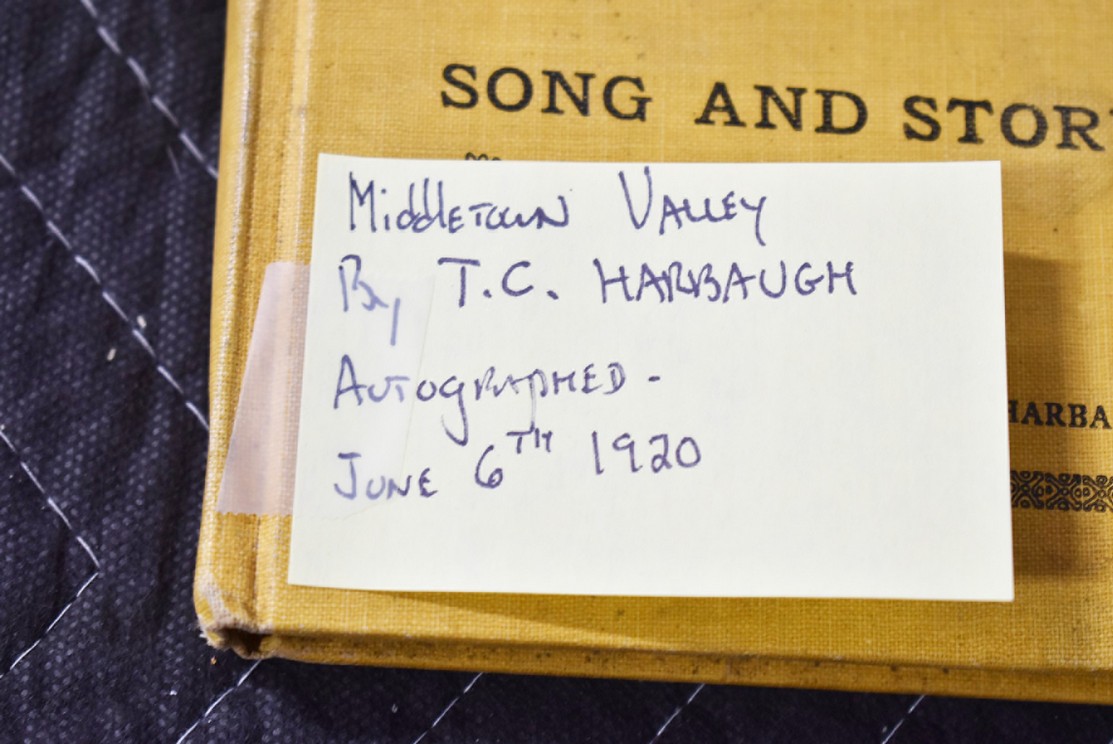 SONG AND STOR
Middletown Valley
By T.C. HARBAUGH
AUTOGRAPHED -
JUNE 6TH 1920
HARBA